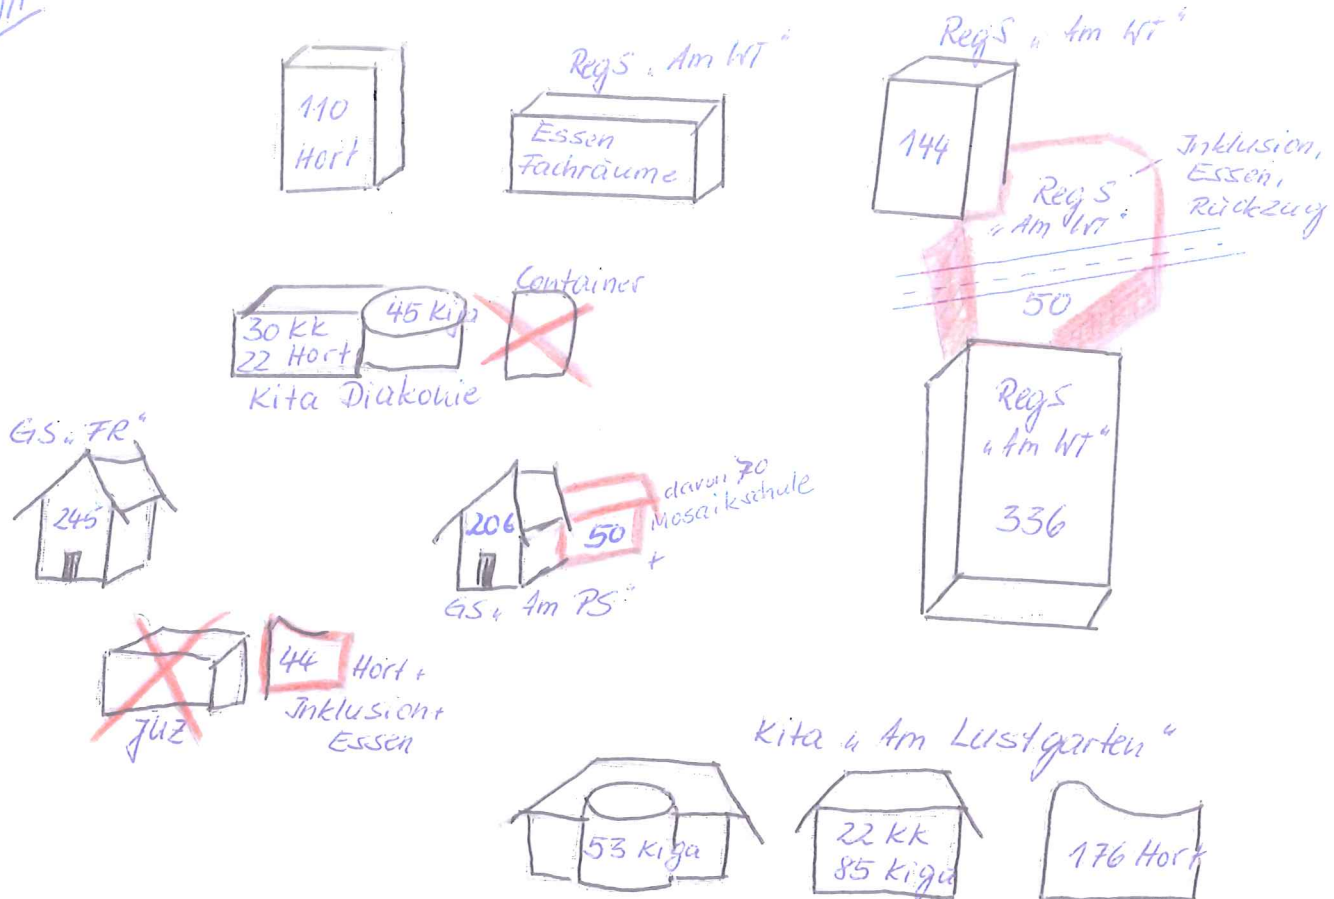 110
Hort
RegS „Am WT“
Essen
Fachräume
RegS „Am WT“
144
Inklusion,
Essen,
Rückzug
RegS
„Am WT“
50
30 KK
22 Hort
45 Kiga
Container
Kita Diakonie
RegS
„Am WT“
336
GS „FR“
245
206
50
davon 70
Mosaikschule
+
GS „Am PS“
JUZ
44
Hort +
Inklusion +
Essen
Kita „Am Lustgarten“
53 Kiga
22 KK
85 Kiga
176 Hort